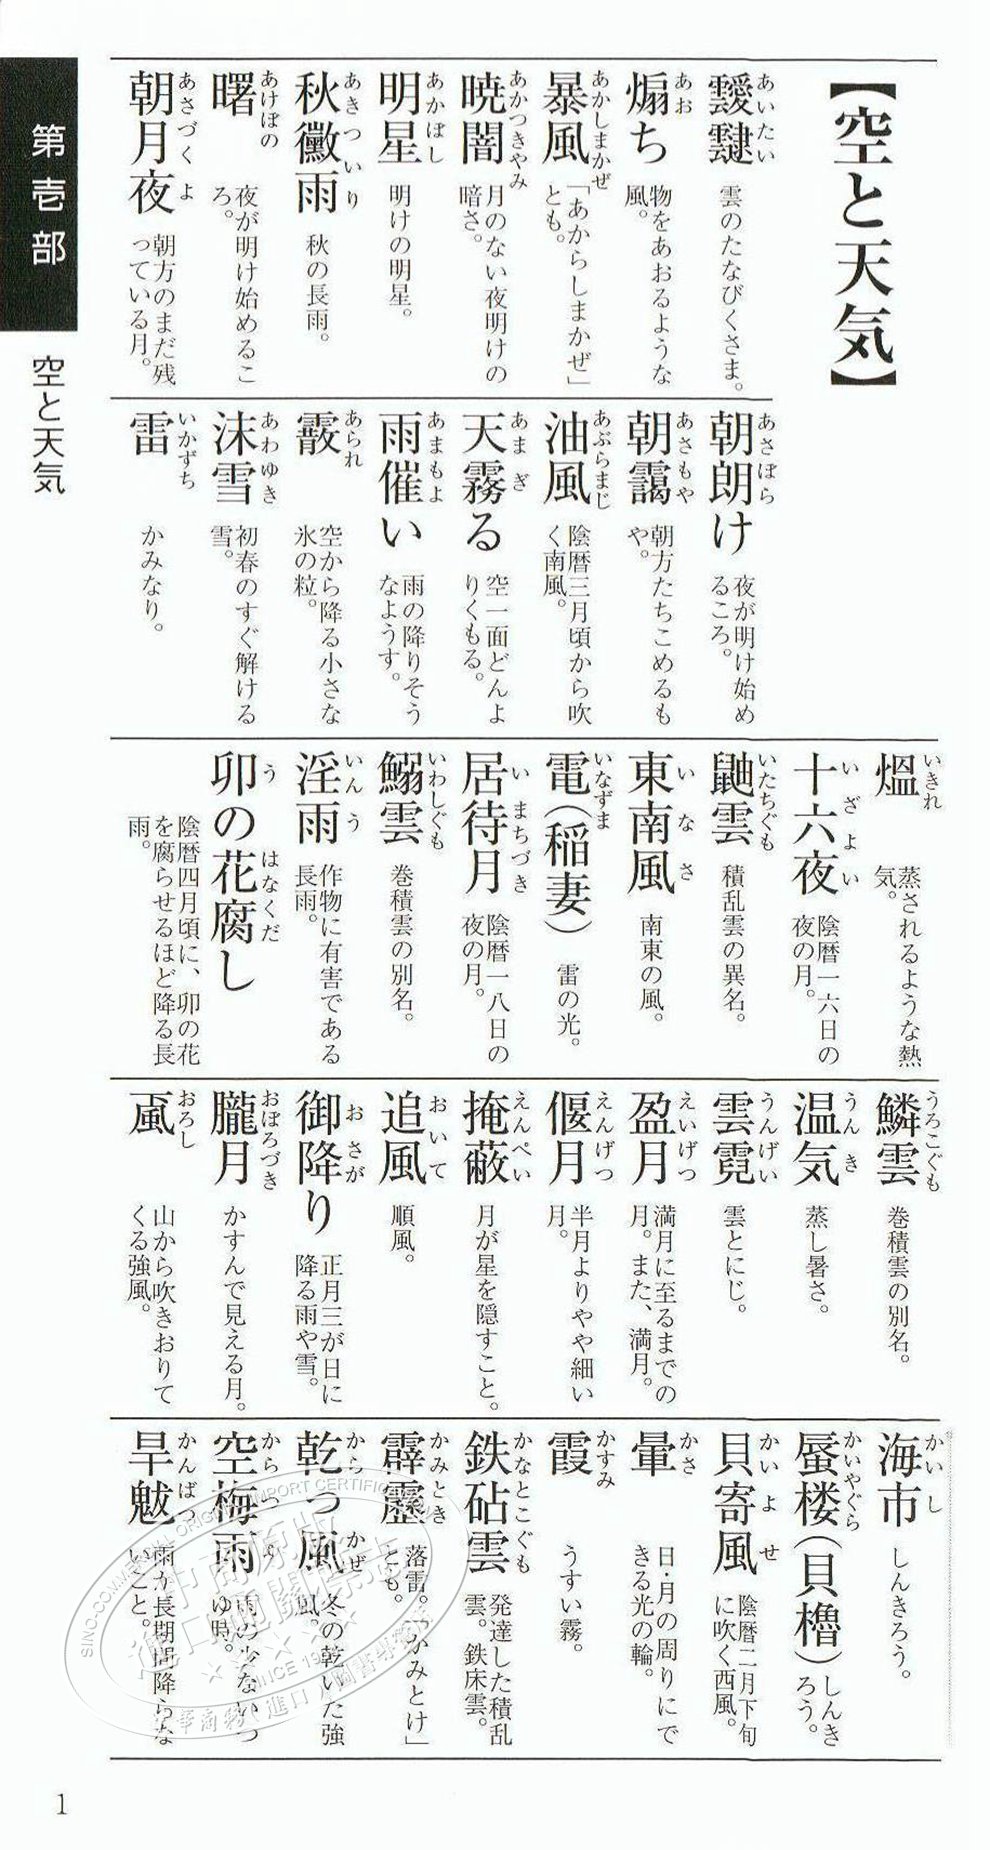 第壱部
空と天気
【空と天気】
靉靆 あいたい
雲のたなびくさま。
煽ち あお
物をあおるような
風。
暴風 あかしまかぜ
「あからしまかぜ」
とも。
暁闇 あかつきやみ
月のない夜明けの
暗さ。
明星 あかぼし
明けの明星。
秋黴雨 あきついり
秋の長雨。
曙 あけぼの
夜が明け始めるこ
ろ。
朝月夜 あさづくよ
朝方のまだ残
っている月。
朝朗け あさぼら
夜が明け始め
るころ。
朝靄 あさもや
朝方たちこめるも
や。
油風 あぶらまじ
陰暦三月頃から吹
く南風。
天霧る あまぎ
空一面どんよ
りくもる。
雨催い あまもよ
雨の降りそう
なようす。
霰 あられ
空から降る小さな
氷の粒。
沫雪 あわゆき
初春のすぐ解ける
雪。
雷 いかずち
かみなり。
熅 いきれ
蒸されるような熱
気。
十六夜 いざよい
陰暦一六日の
夜の月。
鼬雲 いたちぐも
積乱雲の異名。
東南風 いなさ
南東の風。
電(稲妻) いなずま
雷の光。
居待月 いまちづき
陰暦一八日の
夜の月。
鰯雲 いわしぐも
巻積雲の別名。
淫雨 いんう
作物に有害である
長雨。
卯の花腐し うはなくだ
陰暦四月頃に、卯の花
を腐らせるほど降る長
雨。
鱗雲 うろこぐも
巻積雲の別名。
温気 うんき
蒸し暑さ。
雲霓 うんげい
雲とにじ。
盈月 えいげつ
満月に至るまでの
月。また、満月。
偃月 えんげつ
半月よりやや細い
月。
掩蔽 えんぺい
月が星を隠すこと。
追風 おいて
順風。
御降り おさが
正月三が日に
降る雨や雪。
朧月 おぼろづき
かすんで見える月。
颪 おろし
山から吹きおりて
くる強風。
海市 かいし
しんきろう。
蜃楼(貝櫓) かいやぐら
しんき
ろう。
貝寄風 かいよせ
陰暦二月下旬
に吹く西風。
暈 かさ
日・月の周りにで
きる光の輪。
霞 かすみ
うすい霧。
鉄砧雲 かなとこぐも
発達した積乱
雲。鉄床雲。
霹靂 かみとき
落雷。「かみとけ」
とも。
乾っ風 からかぜ
冬の乾いた強
風。
空梅雨 からつゆ
雨の少ないつ
ゆ時。
旱魃 かんばつ
雨が長期間降らな
いこと。
1